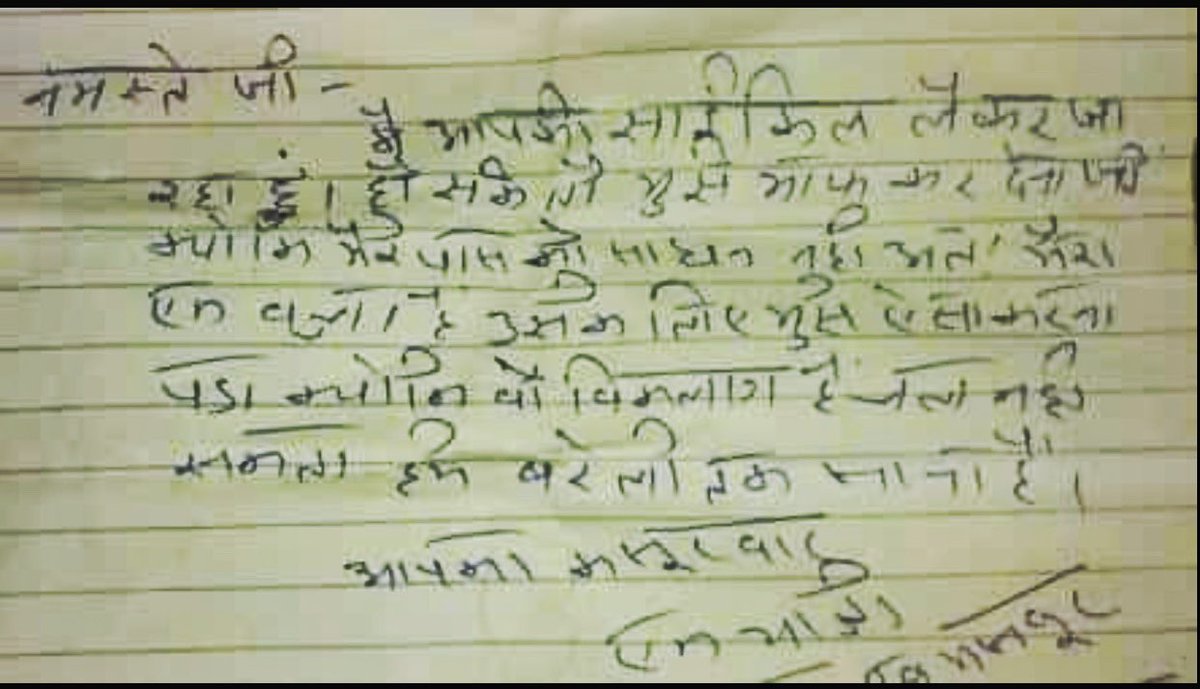 नमस्ते जी -
मैं आपकी साईकिल लेकर जा
रहा हूं। हो सके तो मुझे माफ कर देना जी
क्योकि मेरे पास कोई साधन नही मेरा
एक बच्चा है उसके लिए मुझे ऐसा करना
पडा क्योकि वो विकलांग है चल नही
सकता हमे बरेली तक जाना है।
आपका कसूरवार
एक यात्री
एक मजबूर